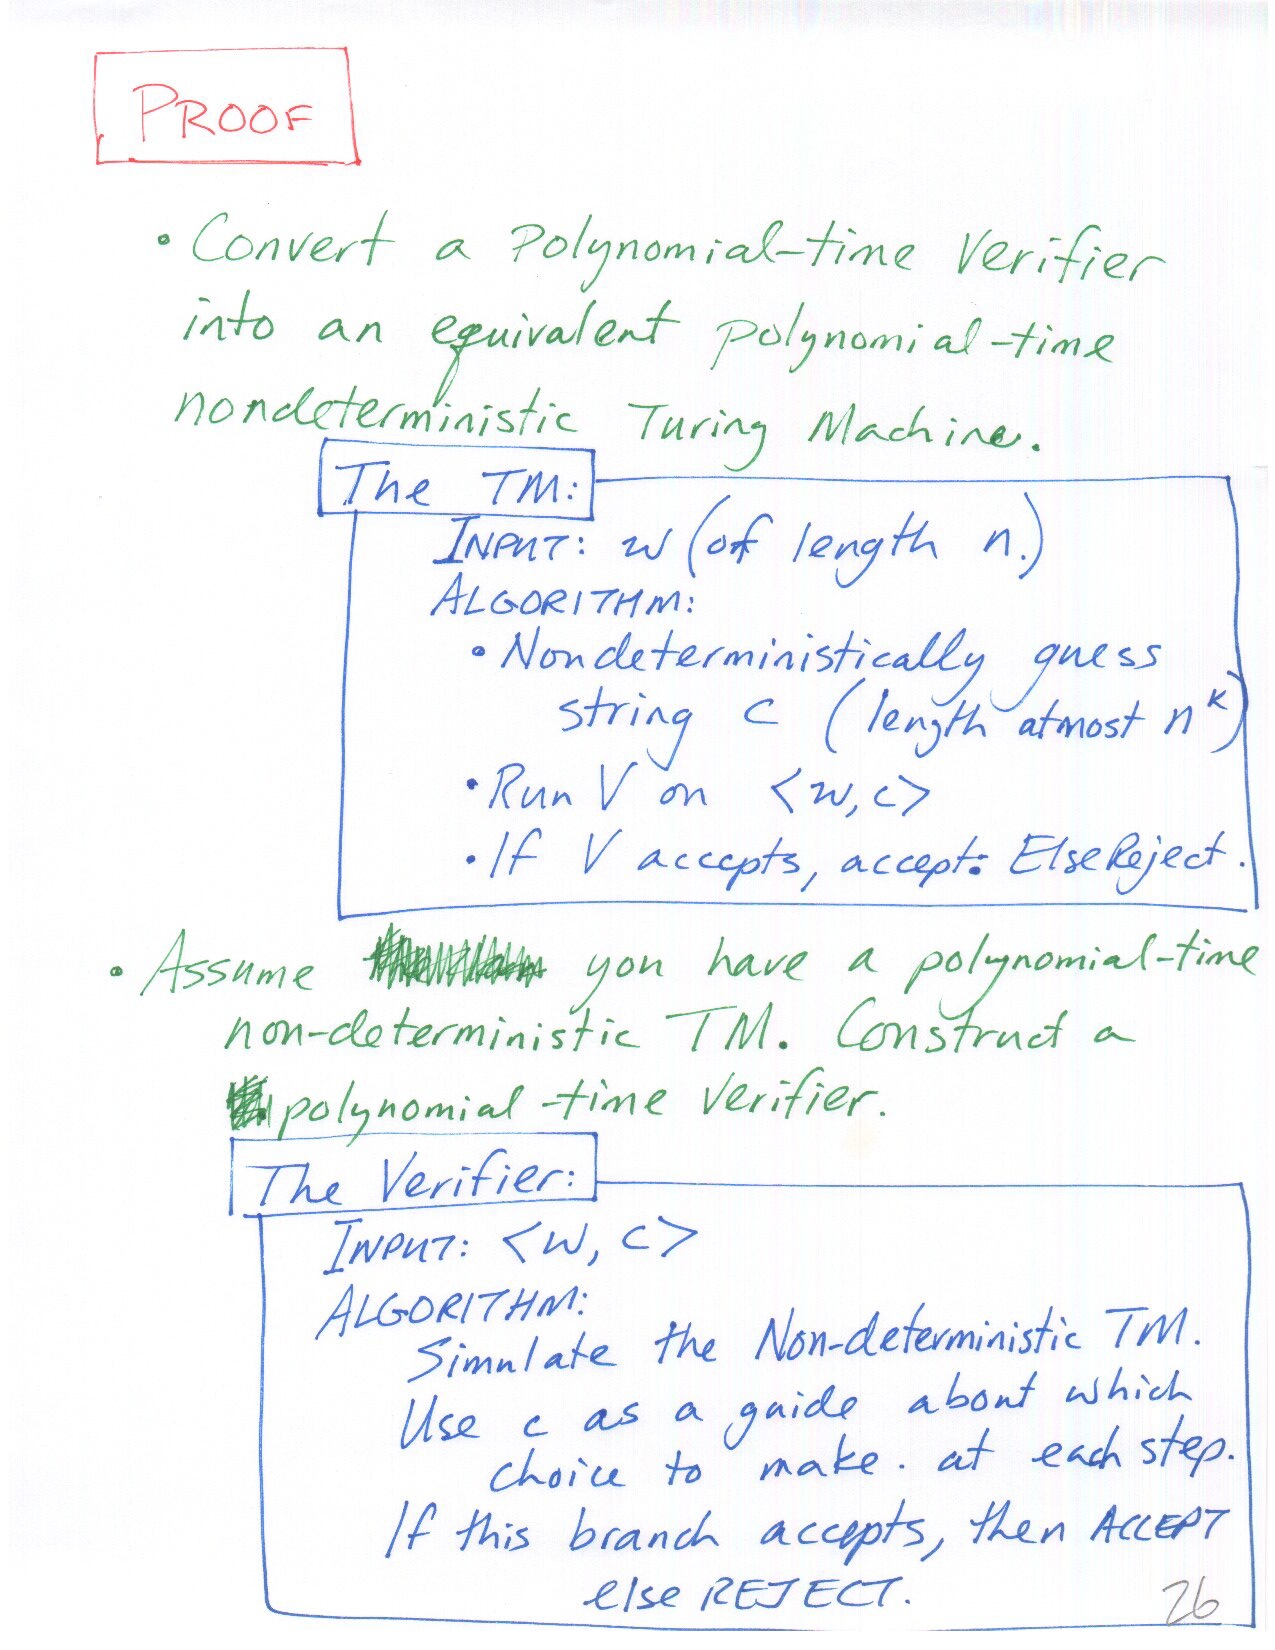 PROOF
• Convert a Polynomial-time Verifier
into an equivalent polynomial-time
nondeterministic Turing Machine.
The TM:
INPUT: w (of length n.)
ALGORITHM:
• Nondeterministically guess
string c (length atmost n^k)
• Run V on <w,c>
• If V accepts, accept. Else Reject.
• Assume you have a polynomial-time
non-deterministic TM. Construct a
polynomial-time Verifier.
The Verifier:
INPUT: <w, c>
ALGORITHM:
Simulate the Non-deterministic TM.
Use c as a guide about which
choice to make. at each step.
If this branch accepts, then ACCEPT
else REJECT.
26